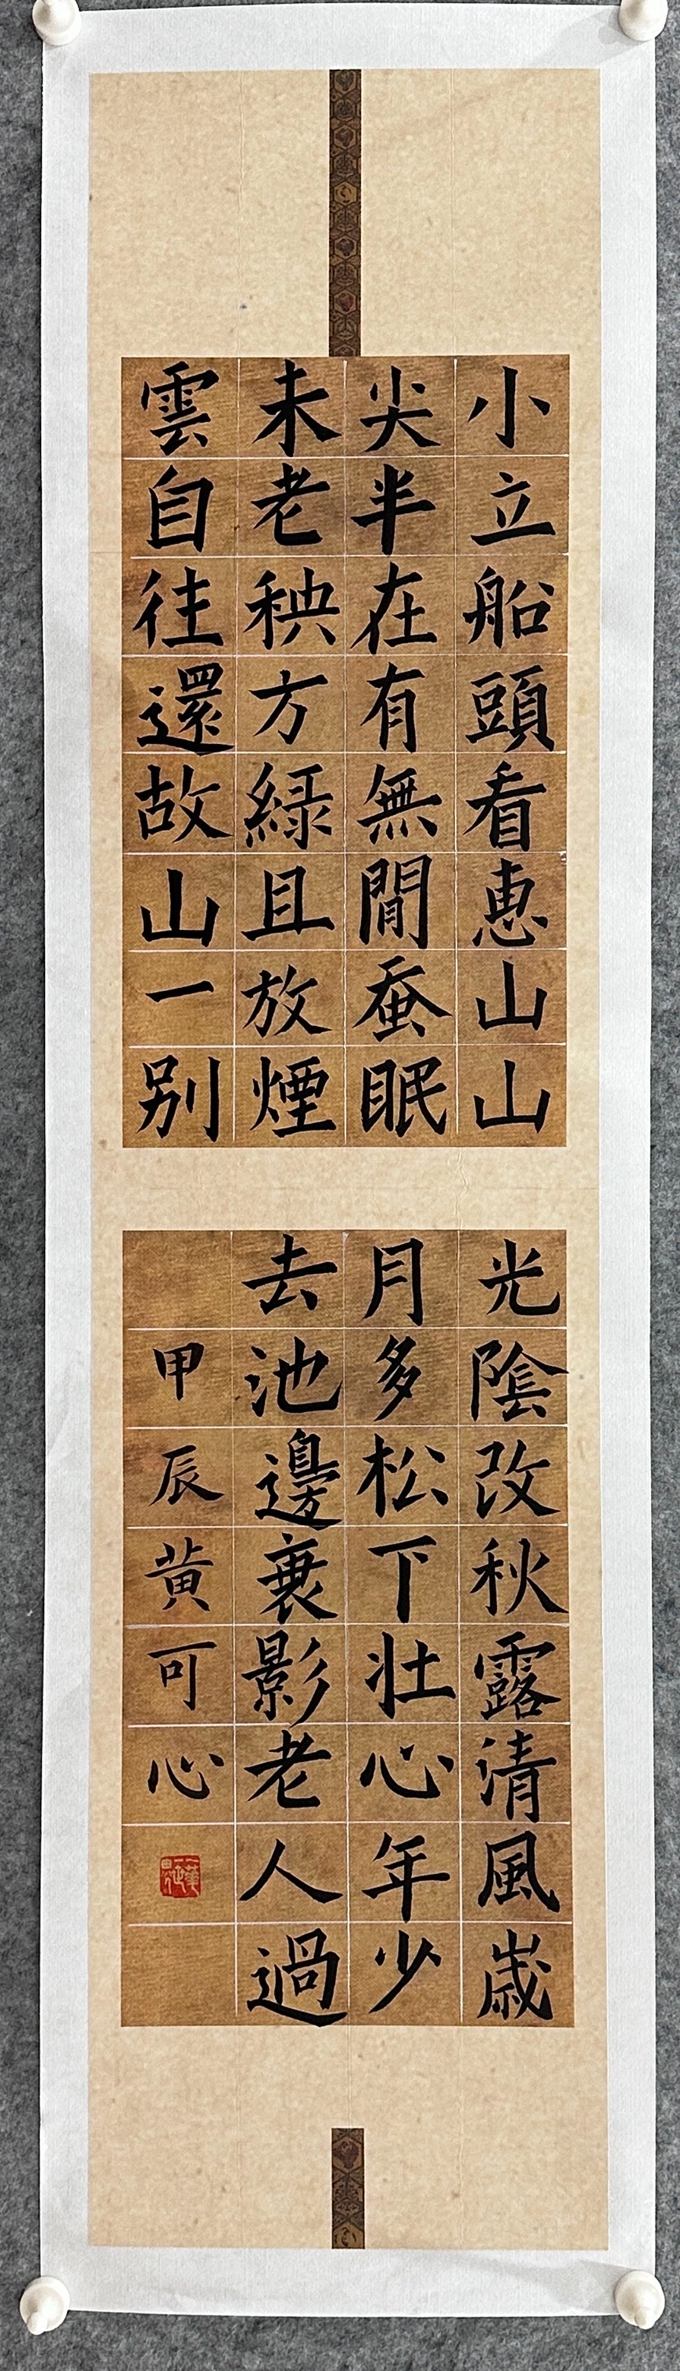 小立船頭看惠山山
尖半在有無間蚕眠
未老秧方綠且放煙
雲自往還故山一別
光陰改秋露清風歲
月多松下壯心年少
去池邊衰影老人過
甲辰黃可心